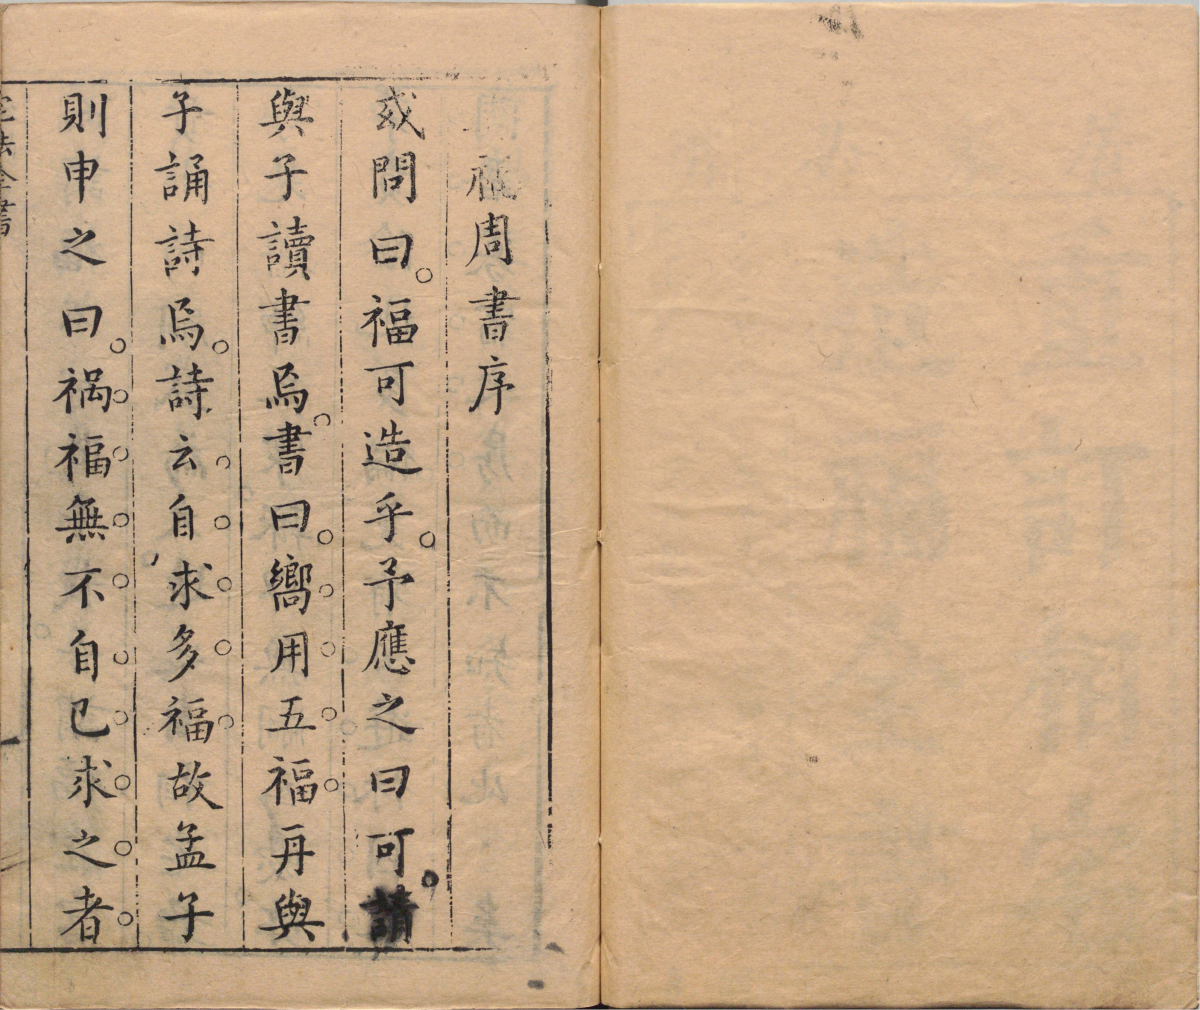 周書序
或問曰福可造乎予應之曰可請
與子讀書焉書曰嚮用五福再與
子誦詩焉詩云自求多福故孟子
則申之曰禍福無不自已求之者
宅法全書